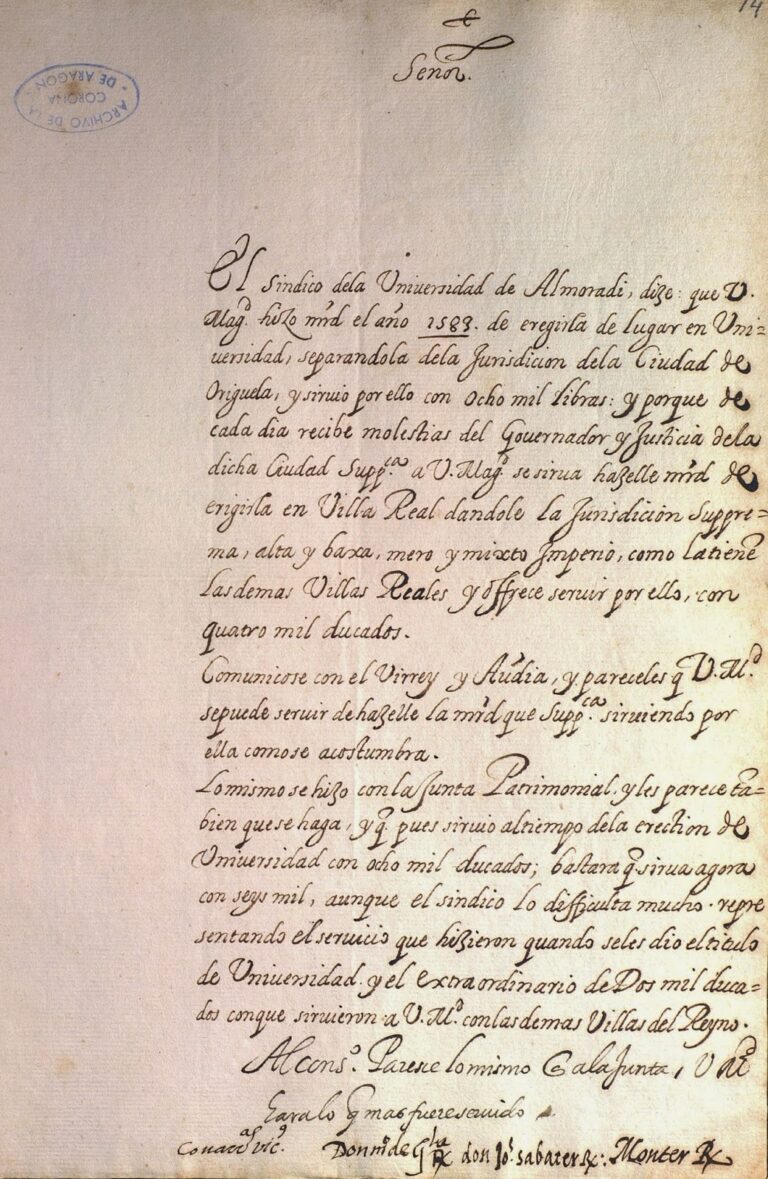 14
Señor.
ARCHIVO DE LA
CORONA
DE ARAGON
El Sindico dela Universidad de Almoradi, dize: que V.
Magd. hizo mrd el año 1583. de eregirla de lugar en Uni=
versidad, separandola dela Jurisdicion dela Ciudad de
Origuela, y siruio por ello con ocho mil libras: y porque de
cada dia recibe molestias del Governador y Justicia dela
dicha Ciudad Suppca. a V. Magd. se sirva hazelle mrd de
erigirla en Villa Real dandole la Jurisdicion Suppre=
ma, alta y baxa, mero y mixto Imperio, como la tiene
las demas Villas Reales y offrece servir por ello, con
quatro mil ducados.
Comunicose con el Virrey y Audia, y pareceles q V. Md.
se puede servir de hazelle la mrd que Suppca. sirviendo por
ella como se acostumbra.
Lo mismo se hizo con la Junta Patrimonial, y les parece ta=
bien que se haga, y q pues siruio al tiempo dela erection de
Universidad con ocho mil ducados; bastara q sirva agora
con seys mil, aunque el sindico lo difficulta mucho. repre
sentando el servicio que hizieron quando seles dio el titulo
de Universidad. y el extraordinario de Dos mil duca=
dos con que sirvieron a V. Md. con las demas Villas del Reyno.
Al Conso. Parece lo mismo q a la Junta, V Md
hara lo q mas fuere servido
Covarr.as vic.
Don mo. de don Jo. sabater Rx. Monter Rx